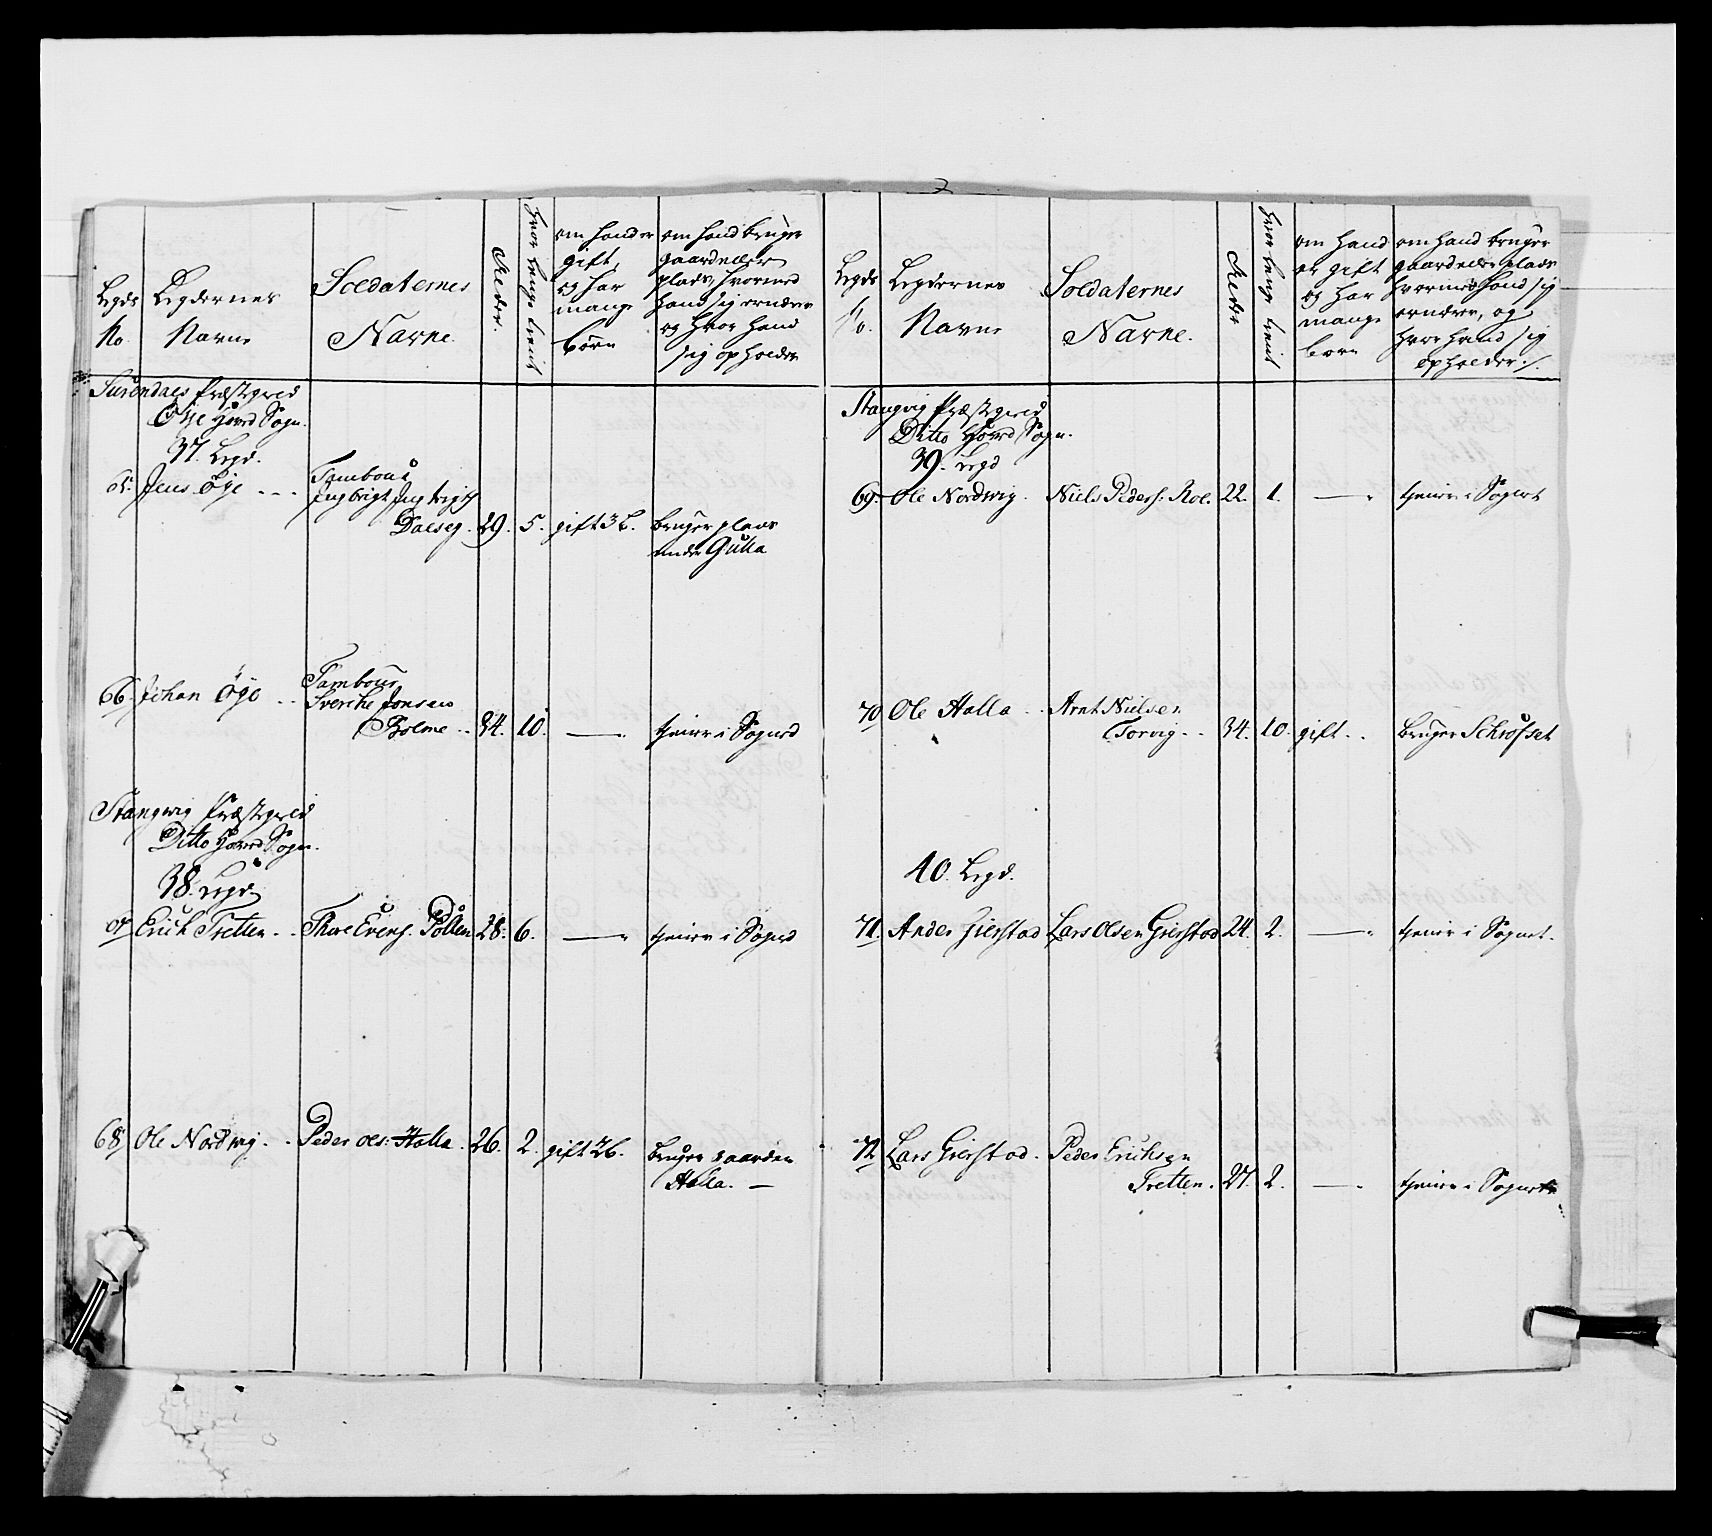 Legds
No.
Legdernes
Navne
Soldaternes
Navne.
Alder.
hvor lenge tient
om hand er
gift,
og har
mange
børn
om hand bruger
gaard eller
plads, hvormed
hand sig ernærer
og hvor hand
sig opholder
Surendals Præstegield
Øye Hoved Sogn.
37. Legd.
65. Jens Øye - - - Tambour
Ingbrigt Ingbrigtß
Dalseg. 29. 5. gift 3 b. bruger plads
under Gulla
66. Johan Øye - - Tambour
Sverche Jonsen
Bolme - - 34. 10. — tiener i Sognet
Stangvig Præstegield
Ditto Hoved Sogn.
38. Legd.
67 Erich Tretten - - Thore Evens. Polten 28. 6. — tiener i Sognet
68 Ole Nordvig - - Peder Ols: Halla. 26. 2. gift 2 b. bruger gaarden
Halla. —
Legds
No.
Legdernes
Navne
Soldaternes
Navne.
Alder
hvor lenge tient
om hand
er gift
og har
mange
børn
om hand bruger
gaard eller plads
hvormed hand sig
ernærer, og
hvor hand sig
opholder ./.
Stangvig Præstegield
Ditto Hoved Sogn.
39. Legd
69. Ole Nordvig. Niels Peders: Roe. 22. 1. — tiener i Sognet
70 Ole Halla - - Arnt Nielsen
Torvig - - 34. 10. gift - - bruger Schrøfset
40. Legd.
71. Ander Gierstad Lars Olsen Gierstad 24. 2. — tiener i Sognet.
72 Lars Gierstad. Peder Erichsen
Tretten. 27. 2. — tiener i Sognet